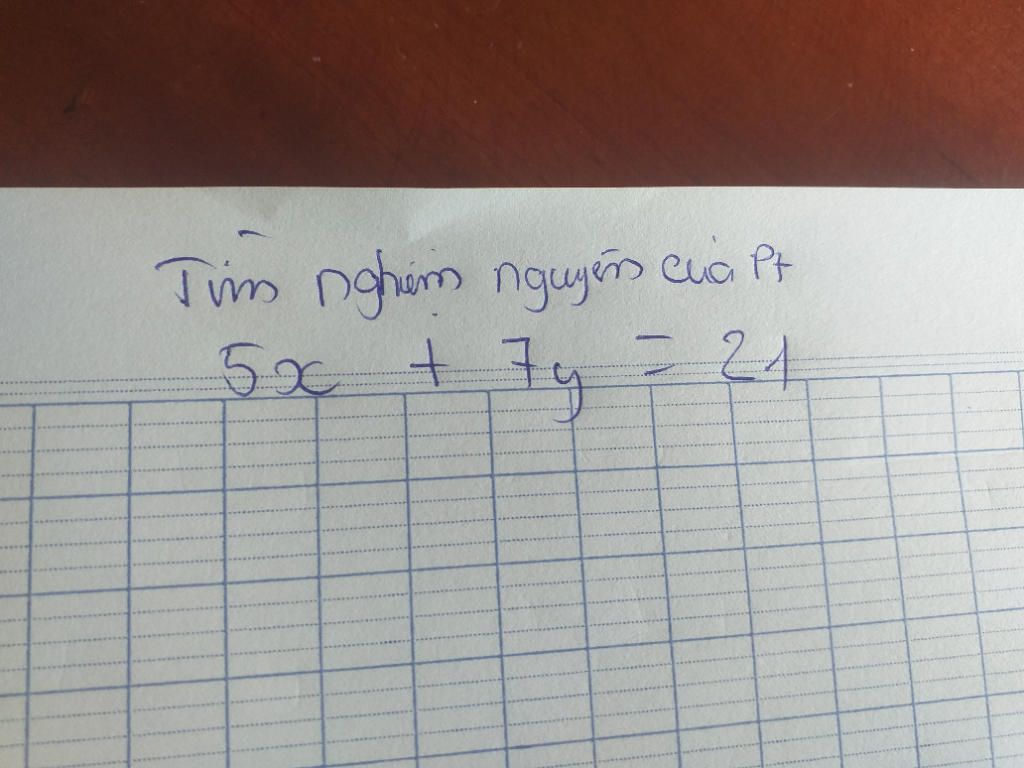 Tìm nghiệm nguyên của Pt
5x + 7y = 21